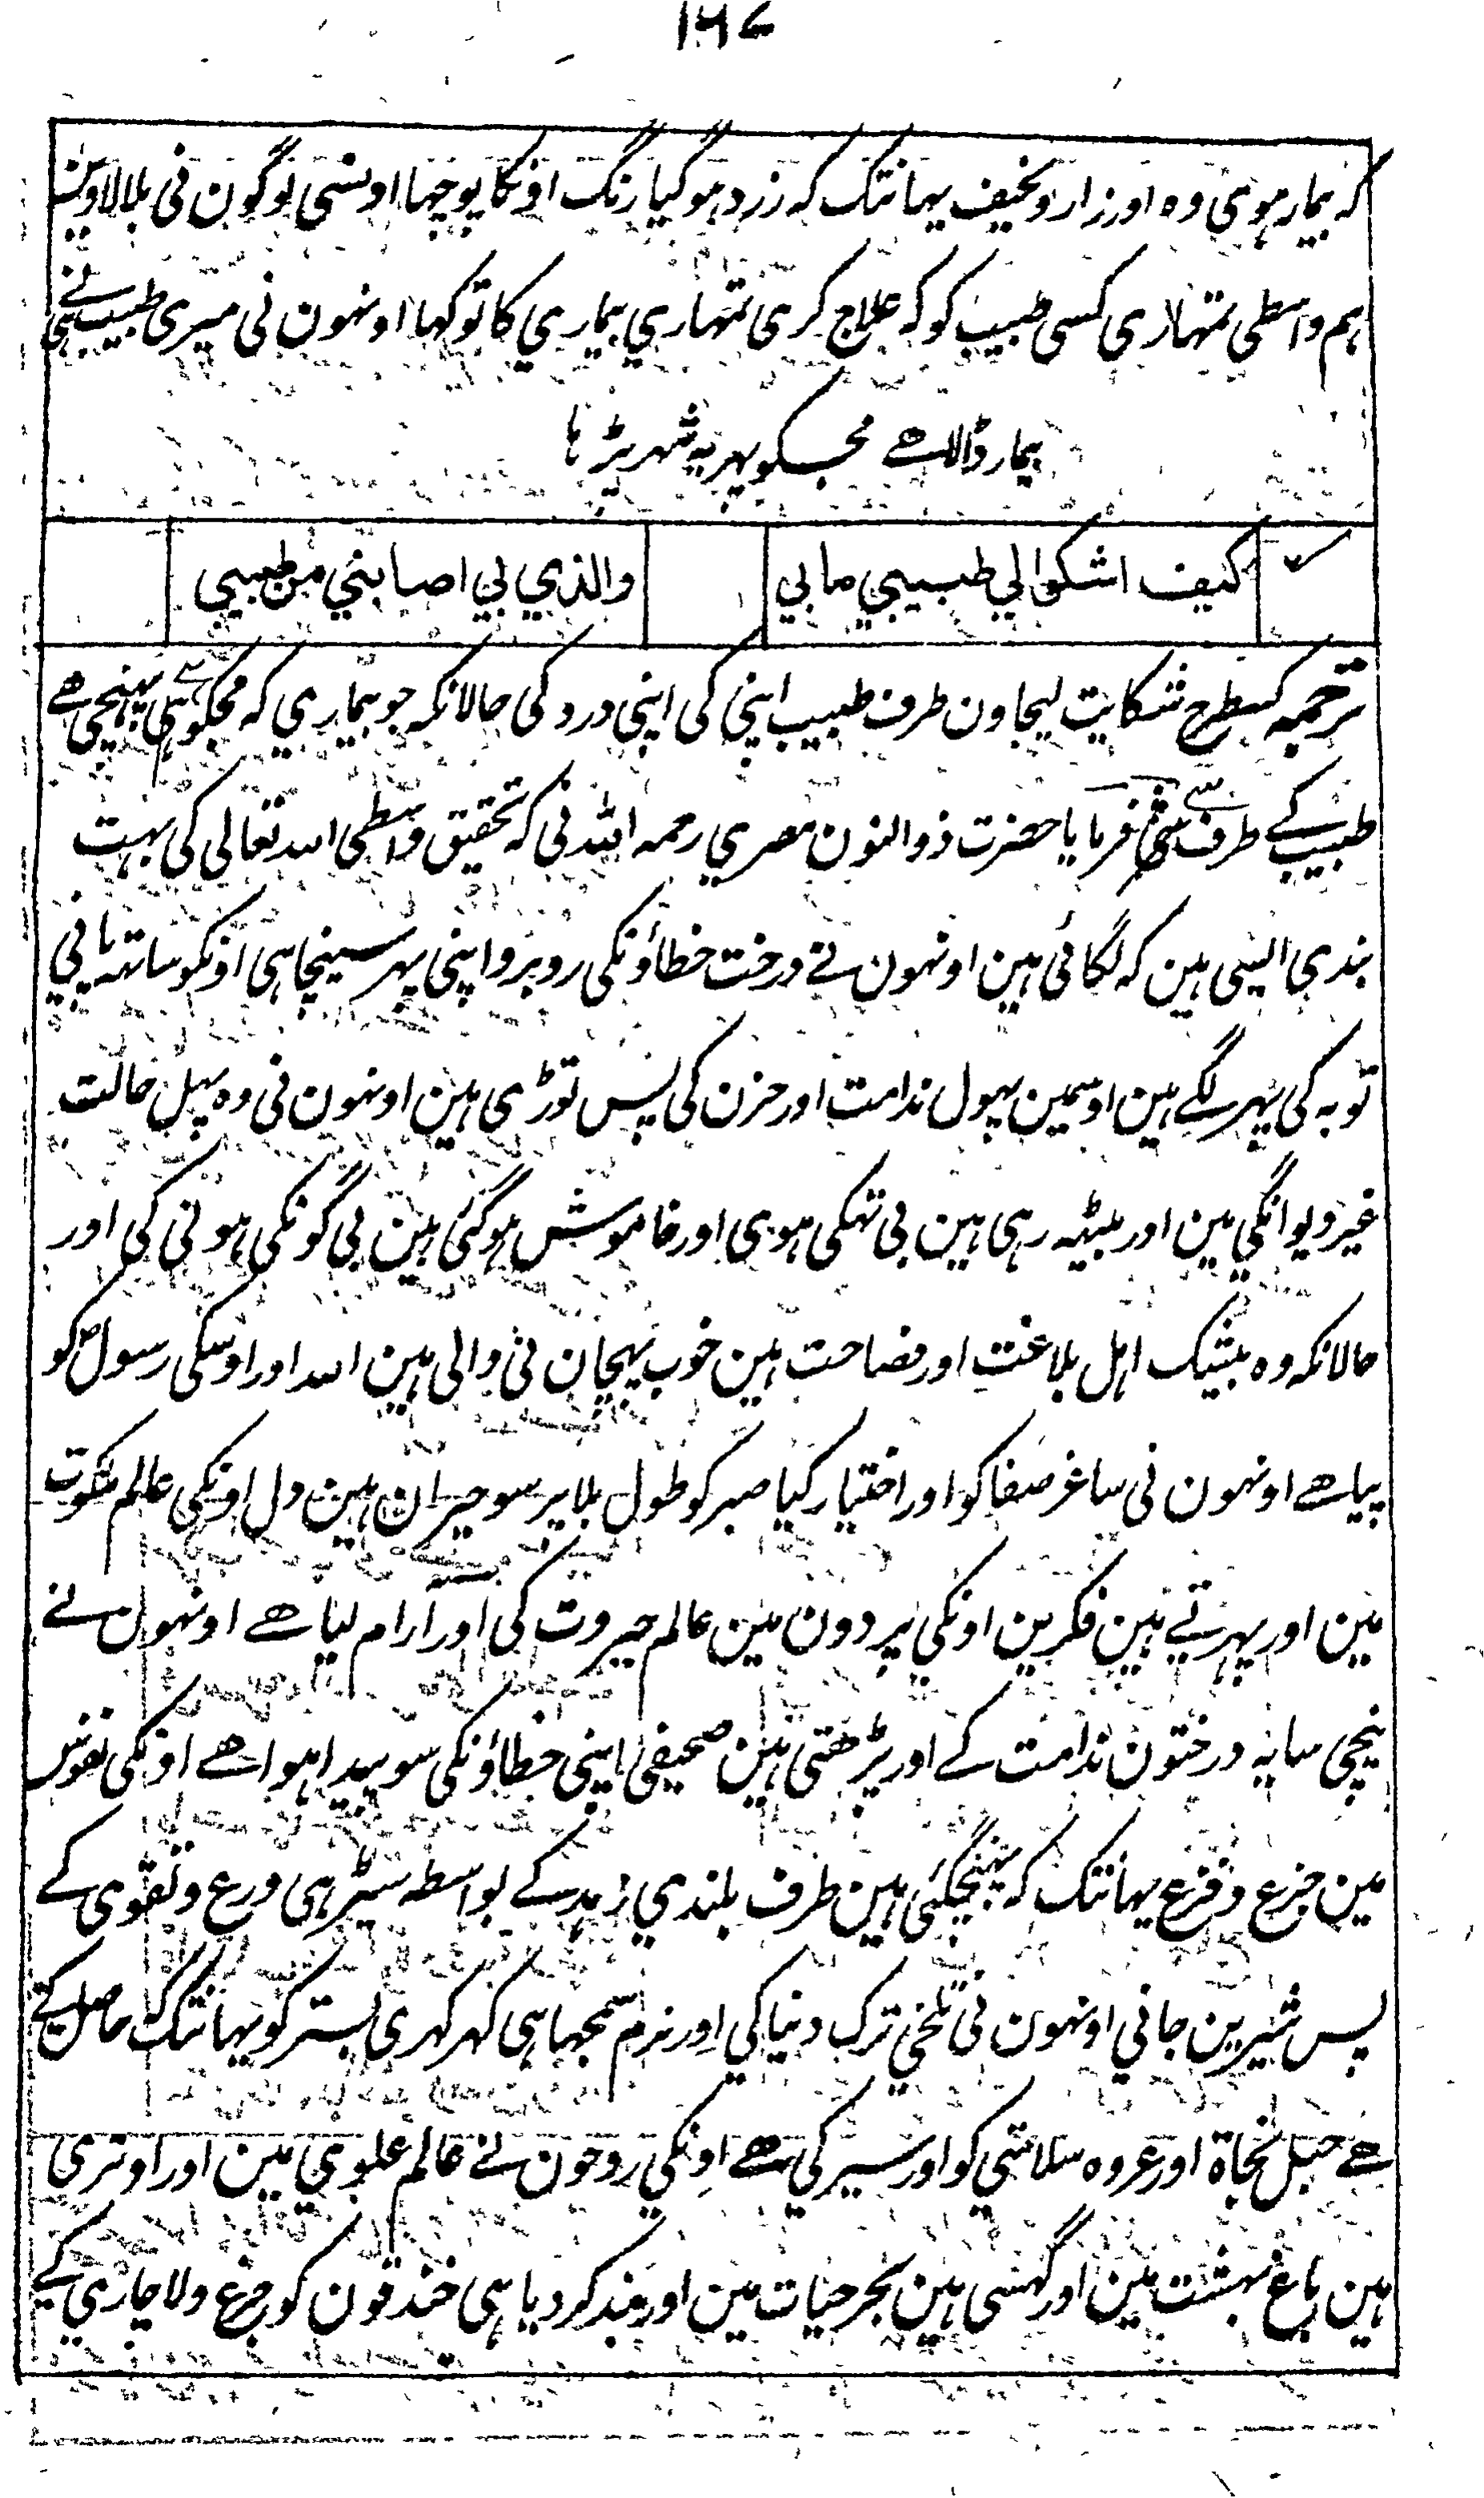 ۱۶۷
کہ بیمار ہوئی وہ اور زار ونحیف یہانتک کہ زرد ہو گیا رنگ اونکا پوچہا اونسی لوگون نی بلا لاوین
ہم واسطی تمہاری کسی طبیب کو کہ علاج کری تمہاری بیماری کا تو کہا اونہون نی میری طبیب نے
بیمار ڈالا ہے مجہکو پہر یہ شعر پڑہا
کیف اشکوالي طبیبي مابي والذي بي اصابني من طبیبي
ترجمہ کسطرح شکایت لیجاون طرف طبیب اپنی کی اپنی درد کی حالانکہ جو بیماري کہ مجکو پہنچی ہے
طبیب کے طرف سے فرمایا حضرت ذوالنون مصري رحمہ اللہ نی کہ تحقیق واسطی اللہ تعالی کی بہت
بندی ایسی ہین کہ لگائی ہین اونہون نے درخت خطاؤنکی روبرو اپنی پہر سینچا ہی اونکو ساتہہ پانی
توبہ کی پہر لگے ہین اوسمین پہول ندامت اور حزن کی پس توڑی ہین اونہون نی وہ پہل حالت
غیر دیوانگی مین اور بیٹہہ رہی ہین بی تہکی ہوی اور خاموش ہوگئی ہین بی گونگی ہونی کی اور
حالانکہ وہ بیشک اہل بلاغت اور فصاحت ہین خوب پہچان نی والی ہین اللہ اور اوسکی رسولؐ کو
پیا ہے اونہون نی ساغر صفا کو اور اختیار کیا صبر کو طول بلا پر سو حیران ہین دل اونکی عالم ملکوت
مین اور پہرتے ہین فکرین اونکی پردون مین عالم جبروت کی اور آرام لیا ہے اونہون نے
نیچی سایہ درختون ندامت کے اور پڑھتی ہین صحیفی اپنی خطاؤنکی سو پیدا ہوا ہے اونکی نفوس
مین جزع وفزع یہانتک کہ پہنچگئی ہین طرف بلندی زہد کے بواسطہ سیڑہی ورع وتقوی کے
پس شیرین جانی اونہون نی تلخی ترک دنیا کی اور نرم سمجہا ہی کہر کہری بستر کو یہانتک کہ حاصل کی
ہے حبل نجاة اور عروہ سلامتی کو اور سیر کی ہے اونکی روحون نے عالم علوی مین اور اوتری
ہین باغ بہشت مین اور گہسی ہین بحر حیات مین اور بند کر دیا ہی خندقون کو جزع ولاچاری کے